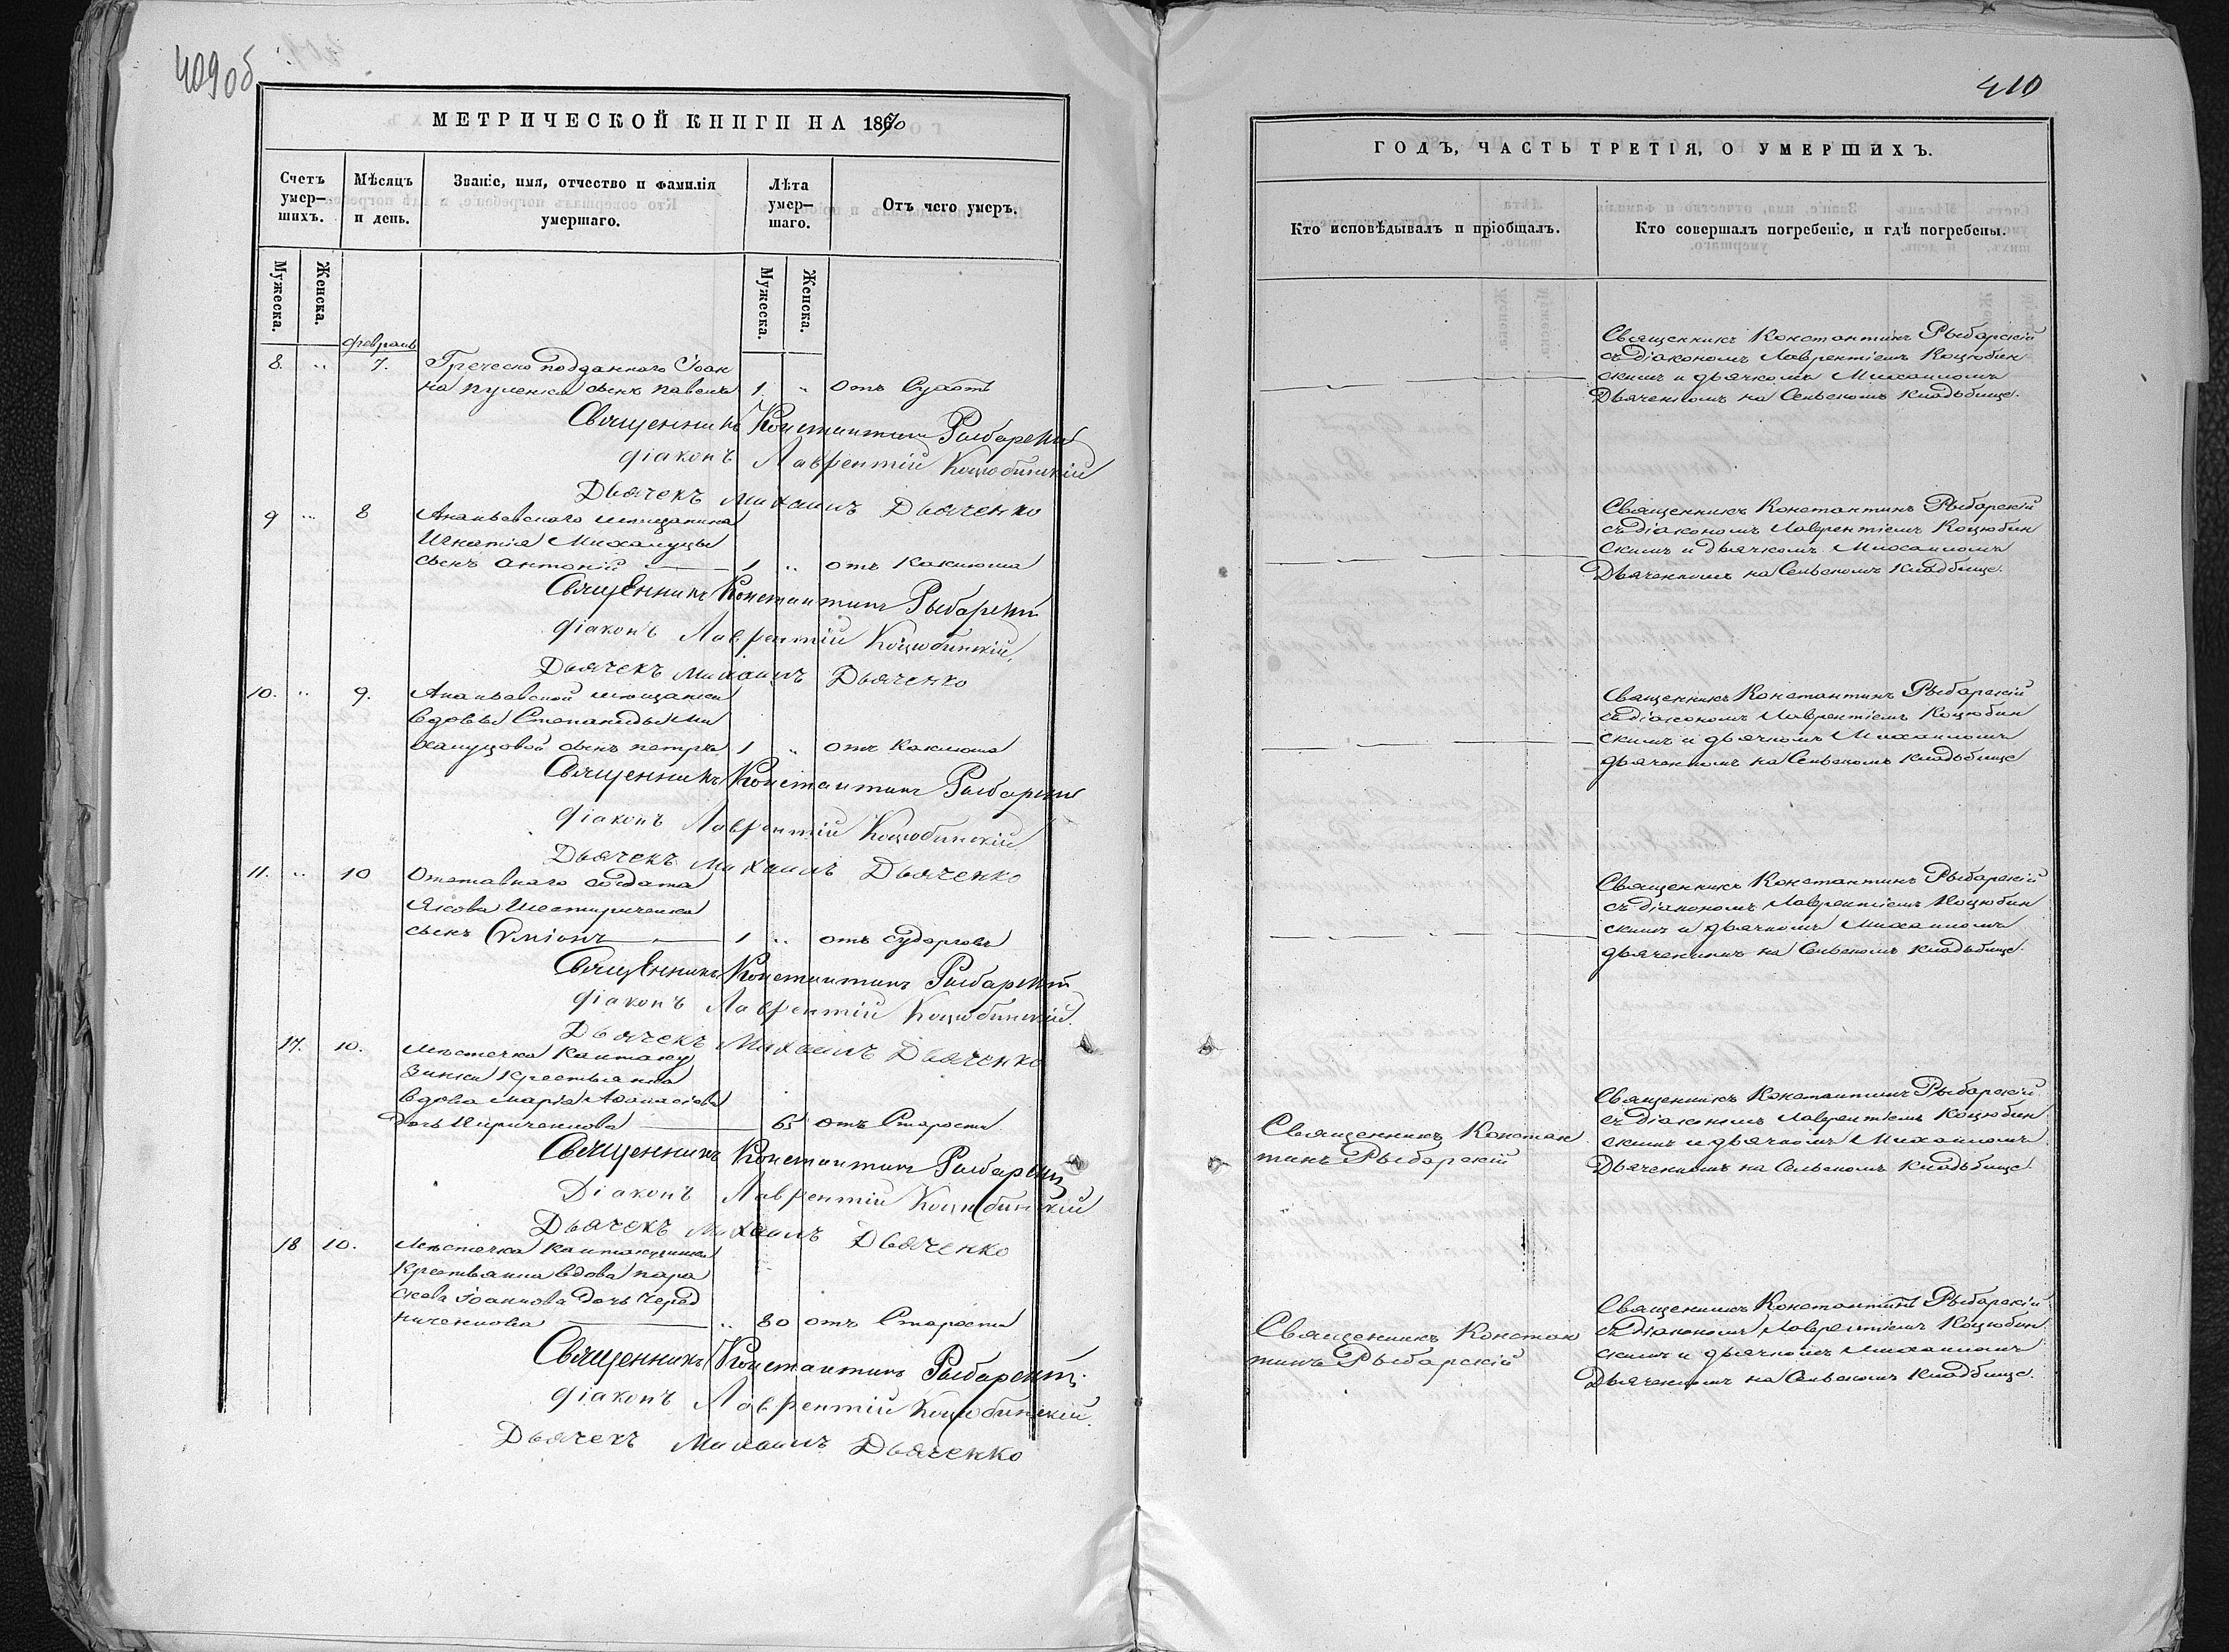 409об
МЕТРИЧЕСКОЙ КНИГИ НА 1870
Счетъ умер-шихъ.
Мѣсяцъ и день.
Званіе, имя, отчество и фамилія умершаго.
Лѣта умер-шаго.
Отъ чего умеръ.
Мужеска.
Женска.
Мужеска.
Женска.
февраль
8. " 7. Греческо подданнаго Іоан
на пуленка сынъ павелъ 1 " отъ Сухотъ
Священникъ Константинъ Рыбарскій
діаконъ Лаврентій Коцюбинскій
Дьячекъ Михаилъ Дьяченко
9 " 8 Ананьевскаго мѣщанина
Игнатія Михалуцы
сынъ антоній 1 " отъ Коклюша
Священникъ Константинъ Рыбарскій
діаконъ Лаврентій Коцюбинскій
Дьячекъ Михаилъ Дьяченко
10. " 9. Ананьевской мѣщанки
вдовы Степаниды Ми
халуцовой сынъ петръ 1 " отъ Коклюша
Священникъ Константинъ Рыбарскій
діаконъ Лаврентій Коцюбинскій
Дьячекъ Михаилъ Дьяченко
11. " 10 Отставнаго солдата
Якова
сынъ Симіонъ 1 " отъ судорговъ
Священникъ Константинъ Рыбарскій
діаконъ Лаврентій Коцюбинскій.
Дьячекъ Михаилъ Дьяченко
17. 10. Мѣстечка Кантаку
зинки Крестьянка
вдова марія Аѳанасіева
дочь Кириченкова 65 отъ Старости
Священникъ Константинъ Рыбарскій
Діаконъ Лаврентій Коцюбинскій
Дьячекъ Михаилъ Дьяченко
18 10. Мѣстечка Кантакузинки
Крестьянка вдова пара
скева Іоаннова дочь Черед
ниченкова " 80 отъ Старости
Священникъ Константинъ Рыбарскій
діаконъ Лаврентій Коцюбинскій.
Дьячекъ Михаилъ Дьяченко
410
ГОДЪ, ЧАСТЬ ТРЕТІЯ, О УМЕРШИХЪ.
Кто исповѣдывалъ и пріобщалъ.
Кто совершалъ погребеніе, и гдѣ погребены.
Священникъ Константинъ Рыбарскій
съ діакономъ Лаврентіемъ Коцюбин
скимъ и дьячкомъ Михаиломъ
Дьяченкомъ на Сельскомъ кладьбище.
Священникъ Константинъ Рыбарскій
съ діакономъ Лаврентіемъ Коцюбин
скимъ и дьячкомъ Михаиломъ
Дьяченкомъ на Сельскомъ Кладбище.
Священникъ Константинъ Рыбарскій
съ діакономъ Лаврентіемъ Коцюбин
скимъ и дьячкомъ Михаиломъ
дьяченкомъ на Сельскомъ кладьбище
Священникъ Константинъ Рыбарскій
съ діакономъ Лаврентіемъ Коцюбин
скимъ и дьячкомъ Михаиломъ
дьяченкомъ на Сельскомъ кладьбище.
Священникъ Констан
тинъ Рыбарскій
Священникъ Константинъ Рыбарскій
съ діакономъ Лаврентіемъ Коцюбин
скимъ и дьячкомъ Михаиломъ
Дьяченкомъ на Сельскомъ кладьбище.
Священникъ Констан
тинъ Рыбарскій
Священникъ Константинъ Рыбарскій
съ діакономъ Лаврентіемъ Коцюбин
скимъ и дьячкомъ Михаиломъ
Дьяченкомъ на Сельскомъ Кладбище.